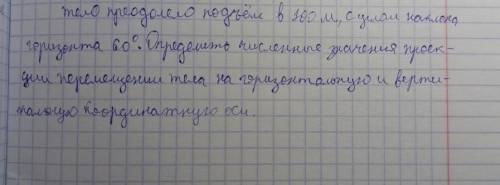 тело преодолело подъём в 100 м, с углом наклона
горизонта 60°. Определить численные значения проек-
ции перемещении тела на горизонтальную и верти-
кальную координатную оси.